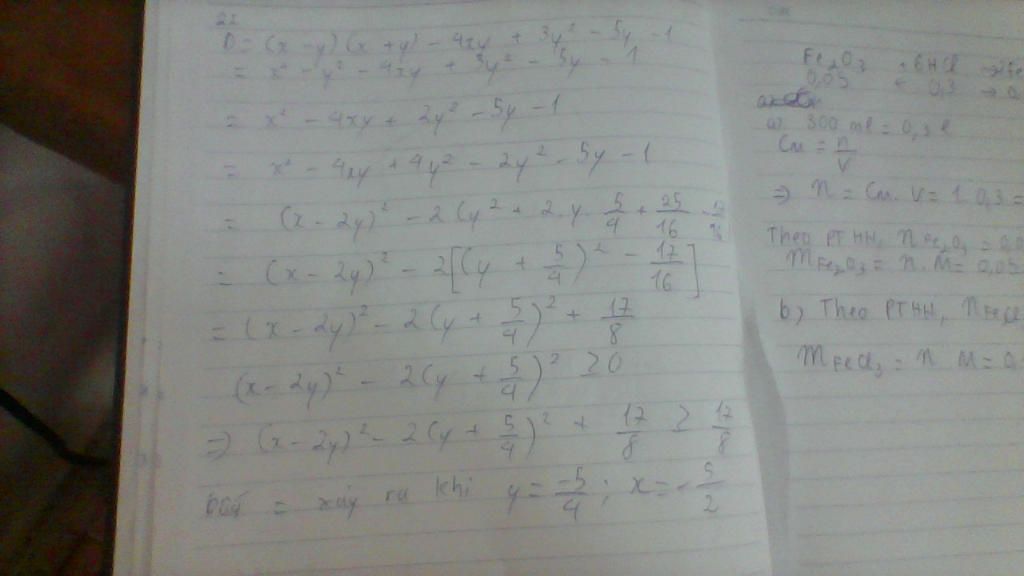 D = (x - y)(x + y) - 4xy + 3y² - 5y - 1
= x² - y² - 4xy + 3y² - 5y - 1
= x² - 4xy + 2y² - 5y - 1
= x² - 4xy + 4y² - 2y² - 5y - 1
= (x - 2y)² - 2(y² + 2.y. 5/4 + 25/16 -
= (x - 2y)² - 2[(y + 5/4)² - 17/16]
= (x - 2y)² - 2(y + 5/4)² + 17/8
(x - 2y)² - 2(y + 5/4)² ≥ 0
=> (x - 2y)² - 2(y + 5/4)² + 17/8 ≥ 17/8
= xảy ra khi y = -5/4 ; x = -5/2
Fe₂O₃ + 6HCl →
0,05 ← 0,3 →
a) 300 ml = 0,3 l
CM = n/V
=> n = CM. V = 1. 0,3 =
Theo PTHH, nFe₂O₃ =
mFe₂O₃ = n. M = 0,05
b) Theo PTHH,
mFeCl₃ = n M = 0,